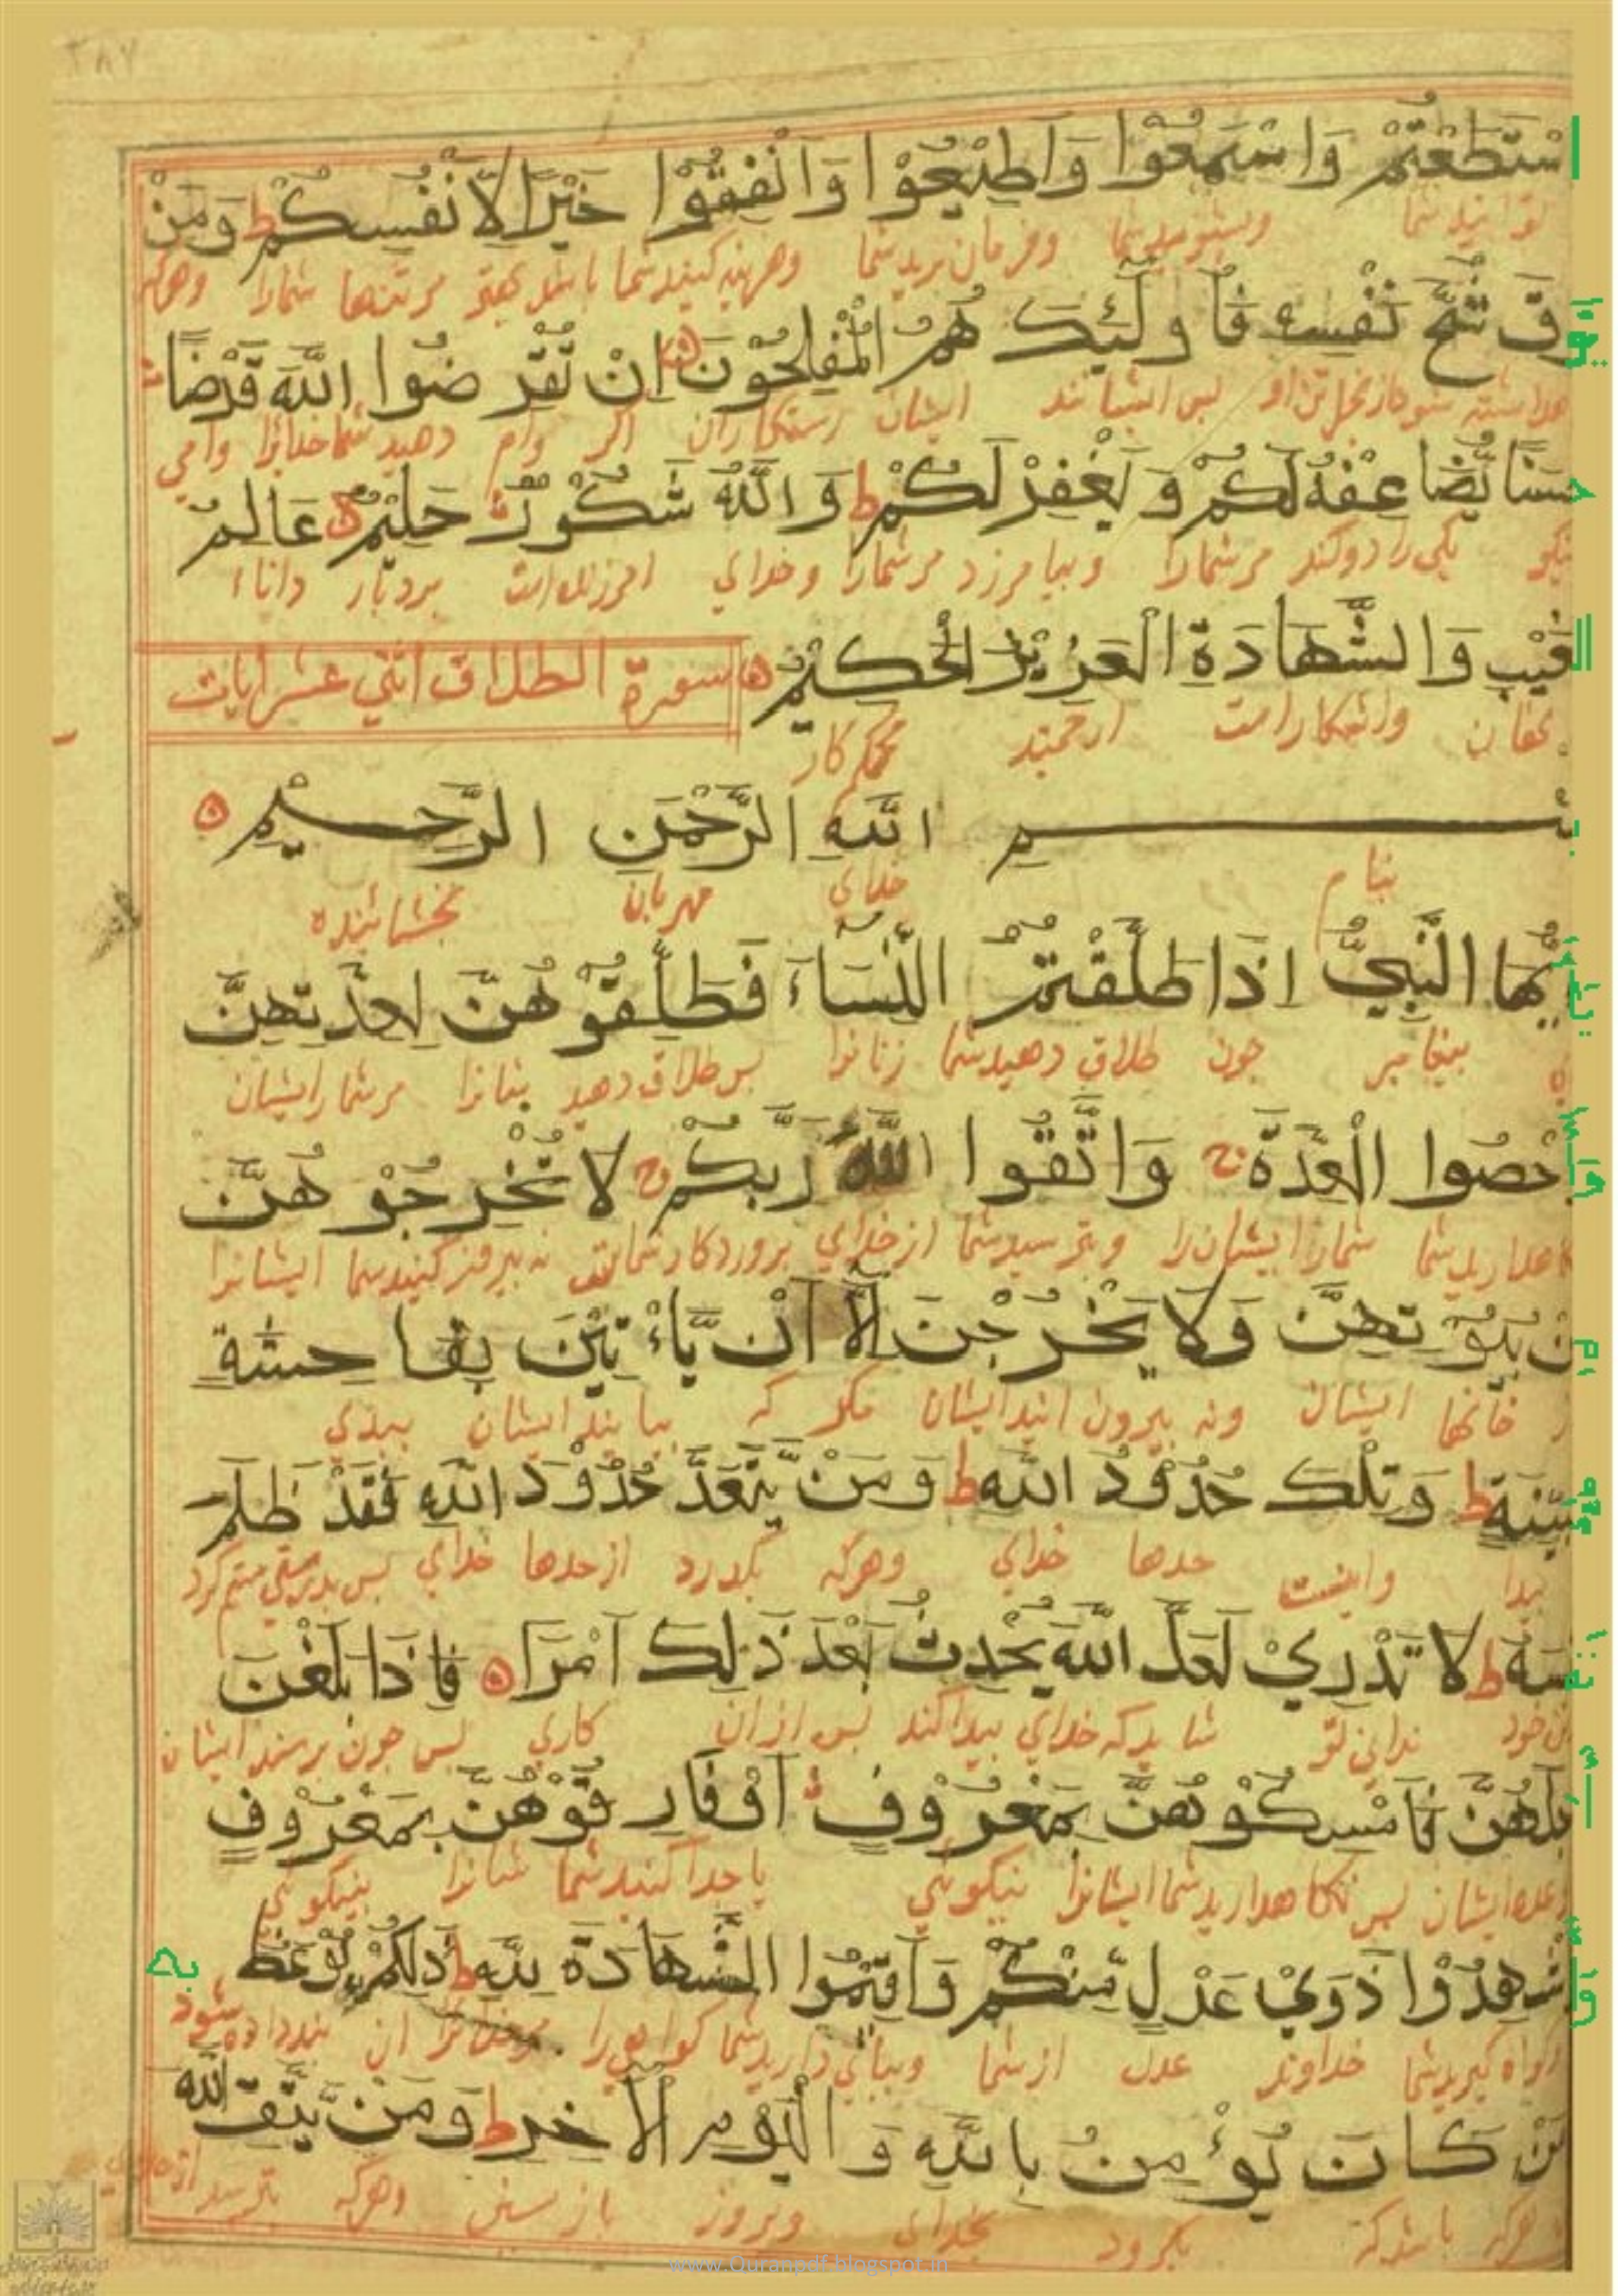 ٣٨٧
اسْتَطَعْتُمْ وَاسْمَعُوا وَاَطِيْعُوْا وَاَنْفِقُوْا خَيْرًا لِاَنْفُسِكُمْ ط وَمَنْ
توانید شما وبشنوید شما وفرمان برید شما وهزینه کنید شما مر تنها شمارا وهرکه
يُّوْقَ شُحَّ نَفْسِهٖ فَاُولٰٓئِكَ هُمُ الْمُفْلِحُوْنَ اِنْ تُقْرِضُوا اللّٰهَ قَرْضًا
پس ایشانند ایشان رستکاران اکر وام دهید شما خدایرا وامی
حَسَنًا يُّضَاعِفْهُ لَكُمْ وَيَغْفِرْ لَكُمْ ط وَاللّٰهُ شَكُوْرٌ حَلِيْمٌ عَالِمُ
نیکو یکی را دو کند مر شمارا وبیامرزد مر شمارا وخدای بردبار داناء
الْغَيْبِ وَالشَّهَادَةِ الْعَزِيْزُ الْحَكِيْمُ
سورة الطلاق اثني عشر ايات
واشکاراست ارجمند محکم کار
بِسْمِ اللّٰهِ الرَّحْمٰنِ الرَّحِيْمِ
بنام خدای مهربان بخشاینده
يٰٓاَيُّهَا النَّبِيُّ اِذَا طَلَّقْتُمُ النِّسَآءَ فَطَلِّقُوْهُنَّ لِعِدَّتِهِنَّ
پیغامبر جون طلاق دهید شما زنانرا پس طلاق دهید مر شمار ایشان
وَاَحْصُوا الْعِدَّةَ ج وَاتَّقُوا اللّٰهَ رَبَّكُمْ ج لَا تُخْرِجُوْهُنَّ
شمار ایشان را وبترسید شما از خدای پروردکار شما ایشانرا
مِنْ بُيُوْتِهِنَّ وَلَا يَخْرُجْنَ اِلَّآ اَنْ يَّاْتِيْنَ بِفَاحِشَةٍ
از خانها ایشان ونه بیرون ایند ایشان مکر که بیایند ایشان ببدی
مُّبَيِّنَةٍ ط وَتِلْكَ حُدُوْدُ اللّٰهِ ط وَمَنْ يَّتَعَدَّ حُدُوْدَ اللّٰهِ فَقَدْ ظَلَمَ
پیدا واینست حدها خدای وهرکه بگذرد از حدها خدای پس بدرستی ستم کرد
نَفْسَهٗ ط لَا تَدْرِيْ لَعَلَّ اللّٰهَ يُحْدِثُ بَعْدَ ذٰلِكَ اَمْرًا ۝ فَاِذَا بَلَغْنَ
تن خود ندانی تو شاید که خدای پیدا کند پس ازان کاری پس جون برسند ایشان
اَجَلَهُنَّ فَاَمْسِكُوْهُنَّ بِمَعْرُوْفٍ اَوْ فَارِقُوْهُنَّ بِمَعْرُوْفٍ
ایشان پس نکاهدارید شما ایشانرا بنیکوئی یا جدا کنید شما بنیکوئی
وَاَشْهِدُوْا ذَوَيْ عَدْلٍ مِّنْكُمْ وَاَقِيْمُوا الشَّهَادَةَ لِلّٰهِ ط ذٰلِكُمْ يُوْعَظُ بِهٖ
کواه کیرید شما خداوند عدل از شما کواهی را ان پند داده شود
مَنْ كَانَ يُؤْمِنُ بِاللّٰهِ وَالْيَوْمِ الْاٰخِرِ ط وَمَنْ يَّتَّقِ اللّٰهَ
هرکه باشد که بکرود بخدای وبروز بازپسین وهرکه بترسد
www.Quranpdf.blogspot.in